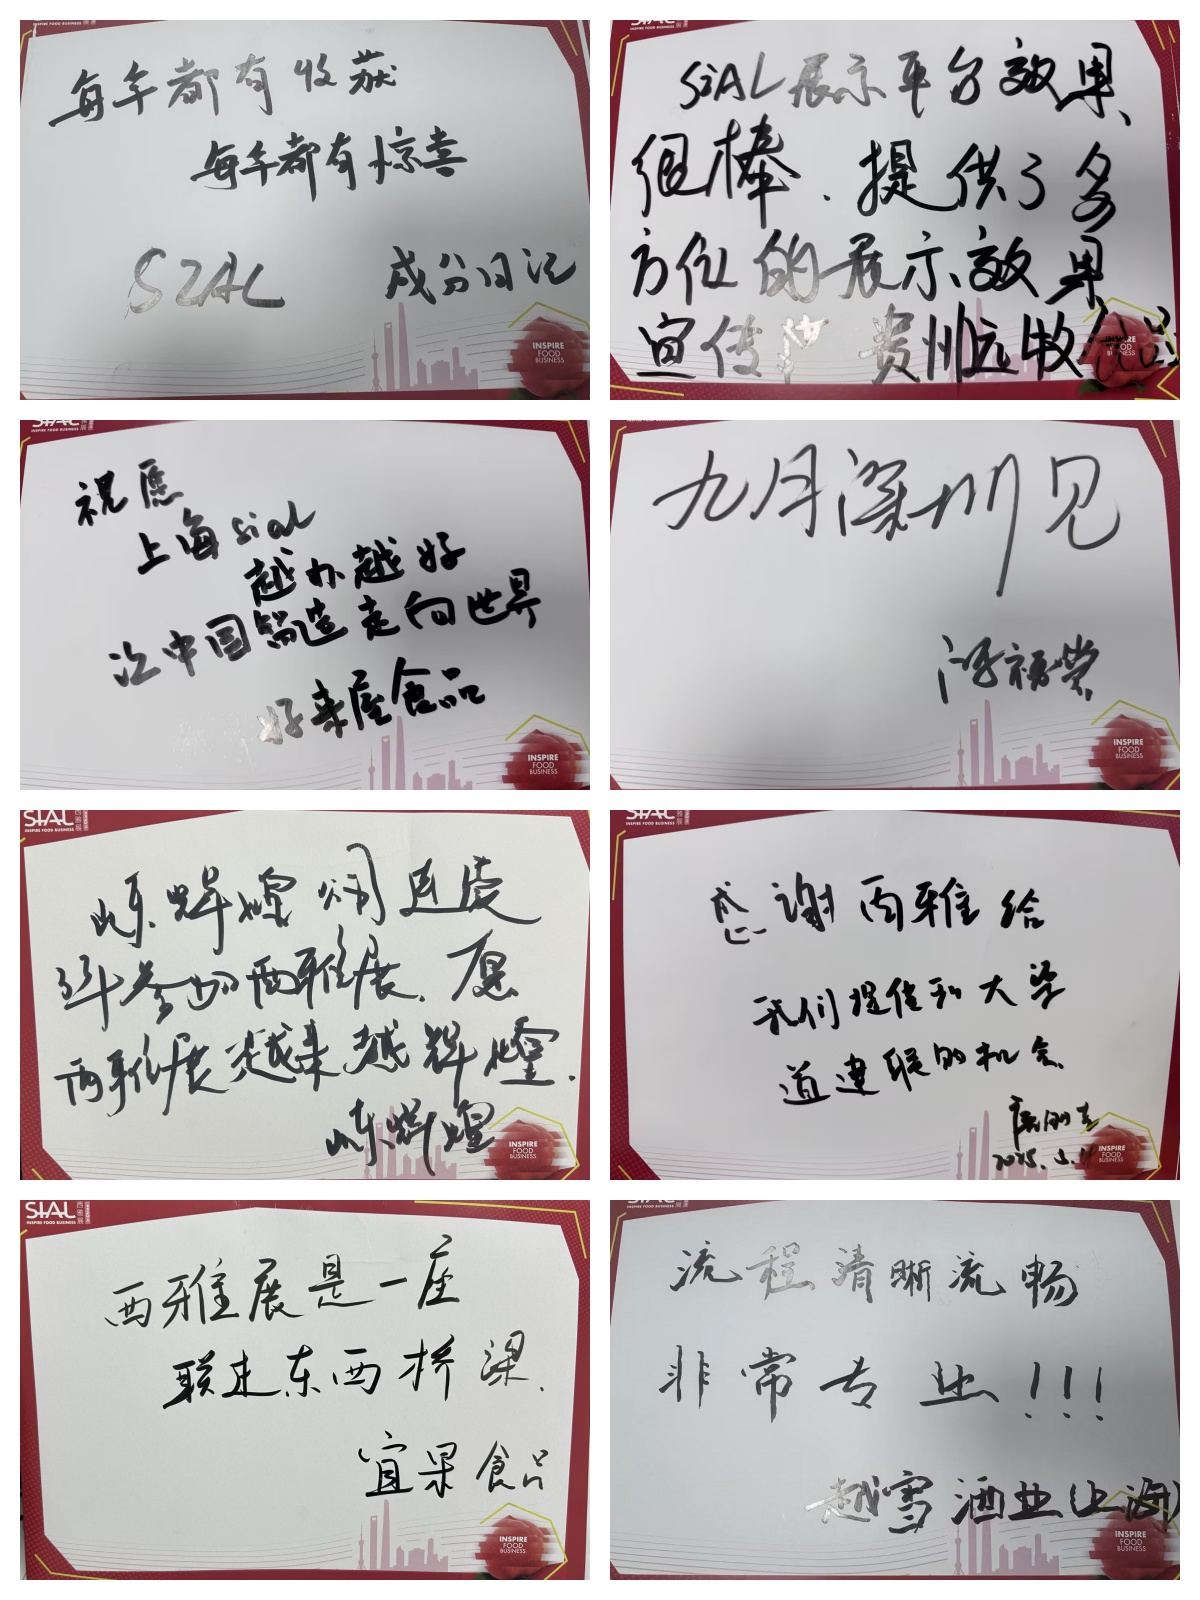 每年都有收获
每年都有惊喜
SIAL 成分日记
INSPIRE
FOOD
BUSINESS
SIAL展示平台效果
很棒、提供了多
方位的展示效果
宣传 贵州远牧
祝愿
上海sial
越办越好
让中国制造走向世界
好来屋食品
INSPIRE
FOOD
BUSINESS
九月深圳见
汪福荣
INSPIRE
FOOD
BUSINESS
SIAL
INSPIRE FOOD BUSINESS
辉煌 连续
3年参加西雅展. 愿
西雅展越来越辉煌.
辉煌
INSPIRE
FOOD
BUSINESS
SIAL
INSPIRE FOOD BUSINESS
感谢西雅给
我们提供和大学
道建联的机会
2025.5.
SIAL
INSPIRE FOOD BUSINESS
西雅展是一座
联通东西桥梁.
宜果食品
INSPIRE
FOOD
BUSINESS
流程清晰流畅
非常专业!!!
越雪酒业(上海)
INSPIRE
FOOD
BUSINESS